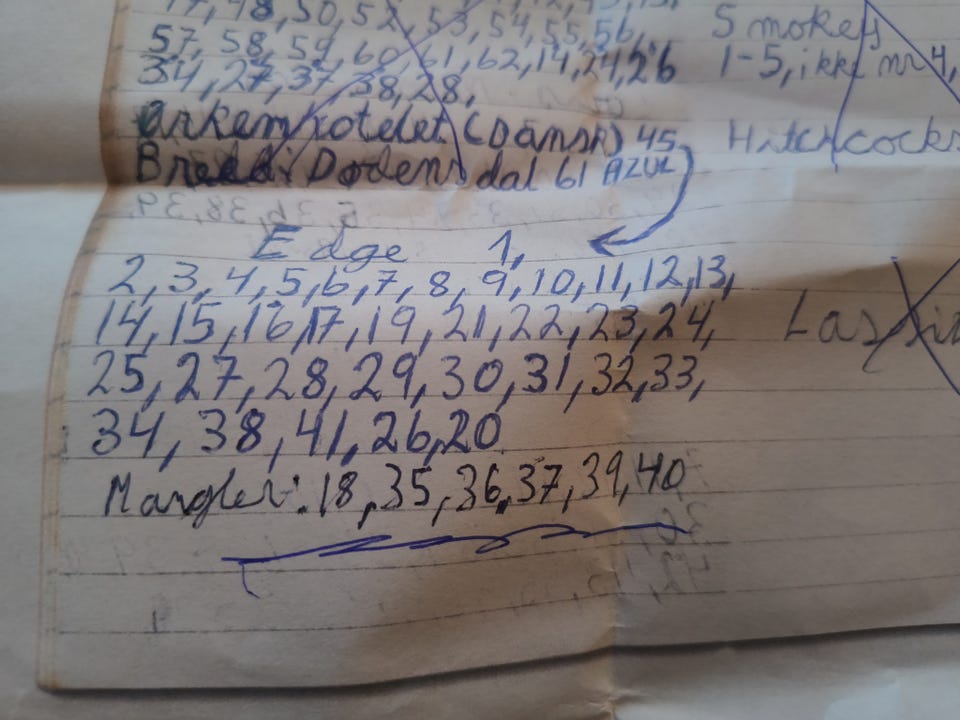 48, 50, 52, 53, 54, 55, 56,
57, 58, 59, 60, 61, 62, 14, 24, 26
34, 27, 37, 38, 28,
(Dansk) 45
Dødens dal 61 AZUL
Smokey
1-5, ikke nr 4,
Hitchcocks
Edge 1,
2, 3, 4, 5, 6, 7, 8, 9, 10, 11, 12, 13,
14, 15, 16, 17, 19, 21, 22, 23, 24,
25, 27, 28, 29, 30, 31, 32, 33,
34, 38, 41, 26, 20
Mangler: 18, 35, 36, 37, 39, 40